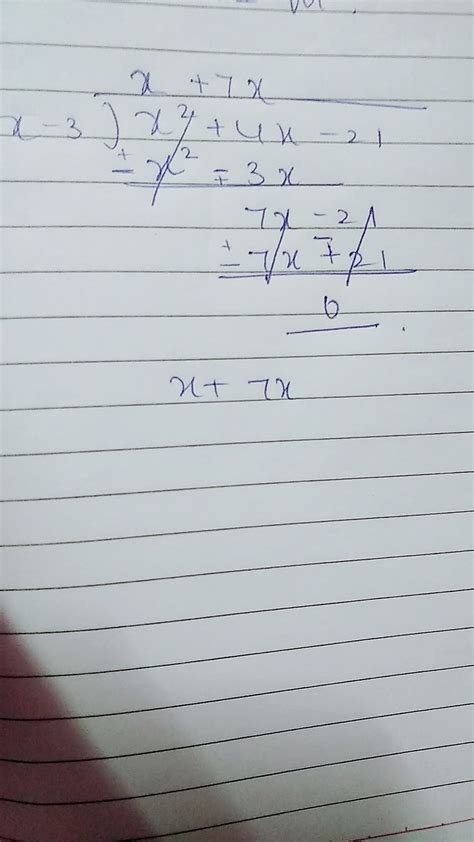 x + 7x
x - 3 ) x² + 4x - 21
± x² ∓ 3x
7x - 21
± 7x ∓ 21
0
x + 7x